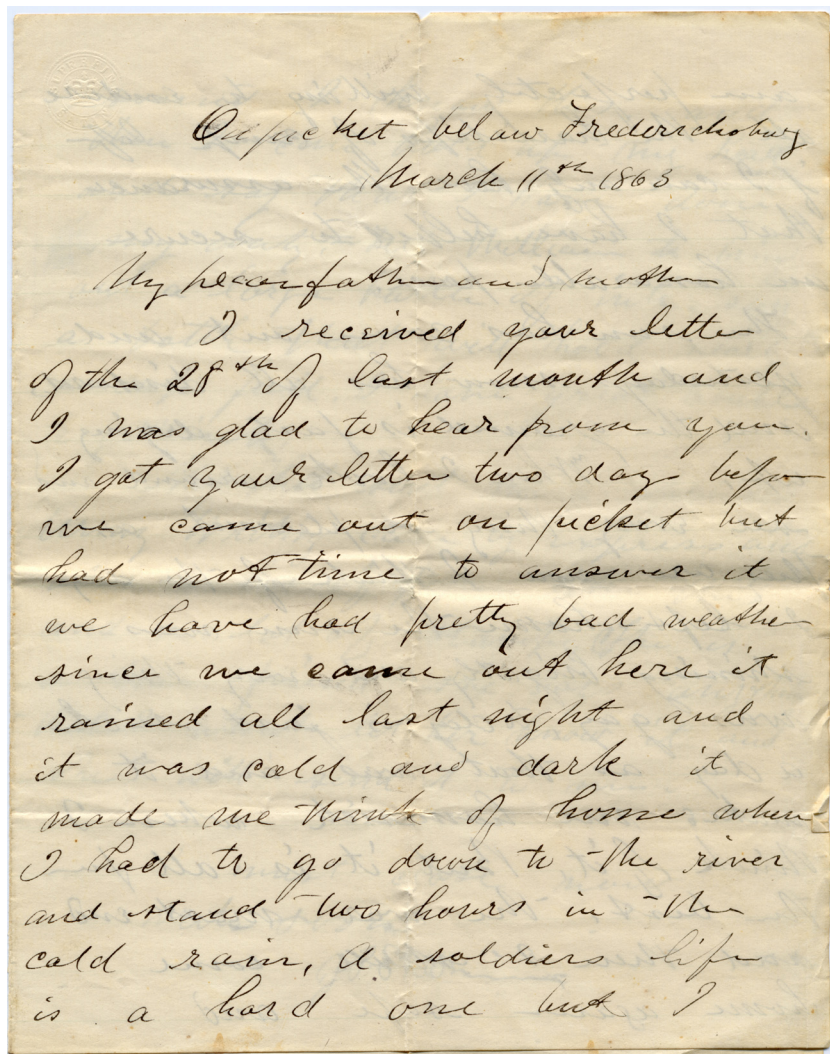 On picket below Fredericksburg
March 11th 1863
My Dear father and mother
I received your letter
of the 28th of last month and
I was glad to hear from you.
I got your letter two days before
we came out on picket but
had not time to answer it
we have had pretty bad weather
since we came out here it
rained all last night and
it was cold and dark it
made me think of home when
I had to go down to the river
and stand two hours in the
cold rain, A soldiers life
is a hard one but I